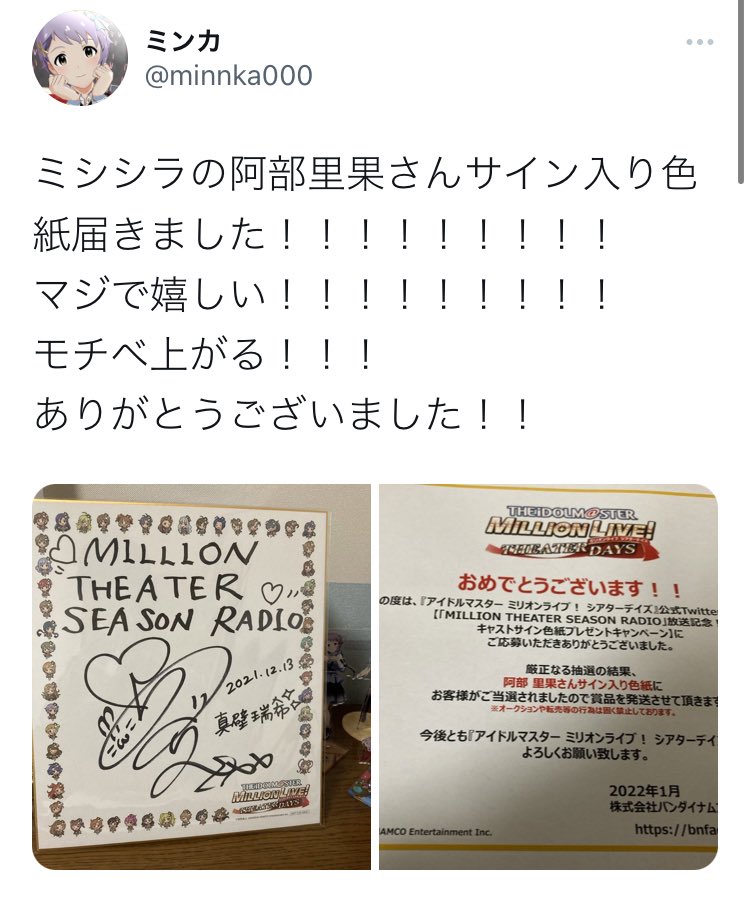 ミンカ
@minnka000
ミシシラの阿部里果さんサイン入り色
紙届きました！！！！！！！！！
マジで嬉しい！！！！！！！！！
モチベ上がる！！！
ありがとうございました！！
MILLION
THEATER
SEASON RADIO
2021.12.13
真壁瑞希
THE iDOLM@STER
MILLION LIVE!
THEATER DAYS
THE iDOLM@STER
MILLION LIVE!
ミリオンライブ! シアターデイズ
THEATER DAYS
おめでとうございます！！
の度は、『アイドルマスター ミリオンライブ！ シアターデイズ』公式Twitte
【「MILLION THEATER SEASON RADIO」放送記念！
キャストサイン色紙プレゼントキャンペーン】に
ご応募いただきありがとうございました。
厳正なる抽選の結果、
阿部 里果さんサイン入り色紙に
お客様がご当選されましたので賞品を発送させて頂きます
※オークションや転売等の行為は固く禁止しております。
今後とも『アイドルマスター ミリオンライブ！ シアターデイ
よろしくお願い致します。
2022年1月
株式会社バンダイナム
AMCO Entertainment Inc.
https://bnfa